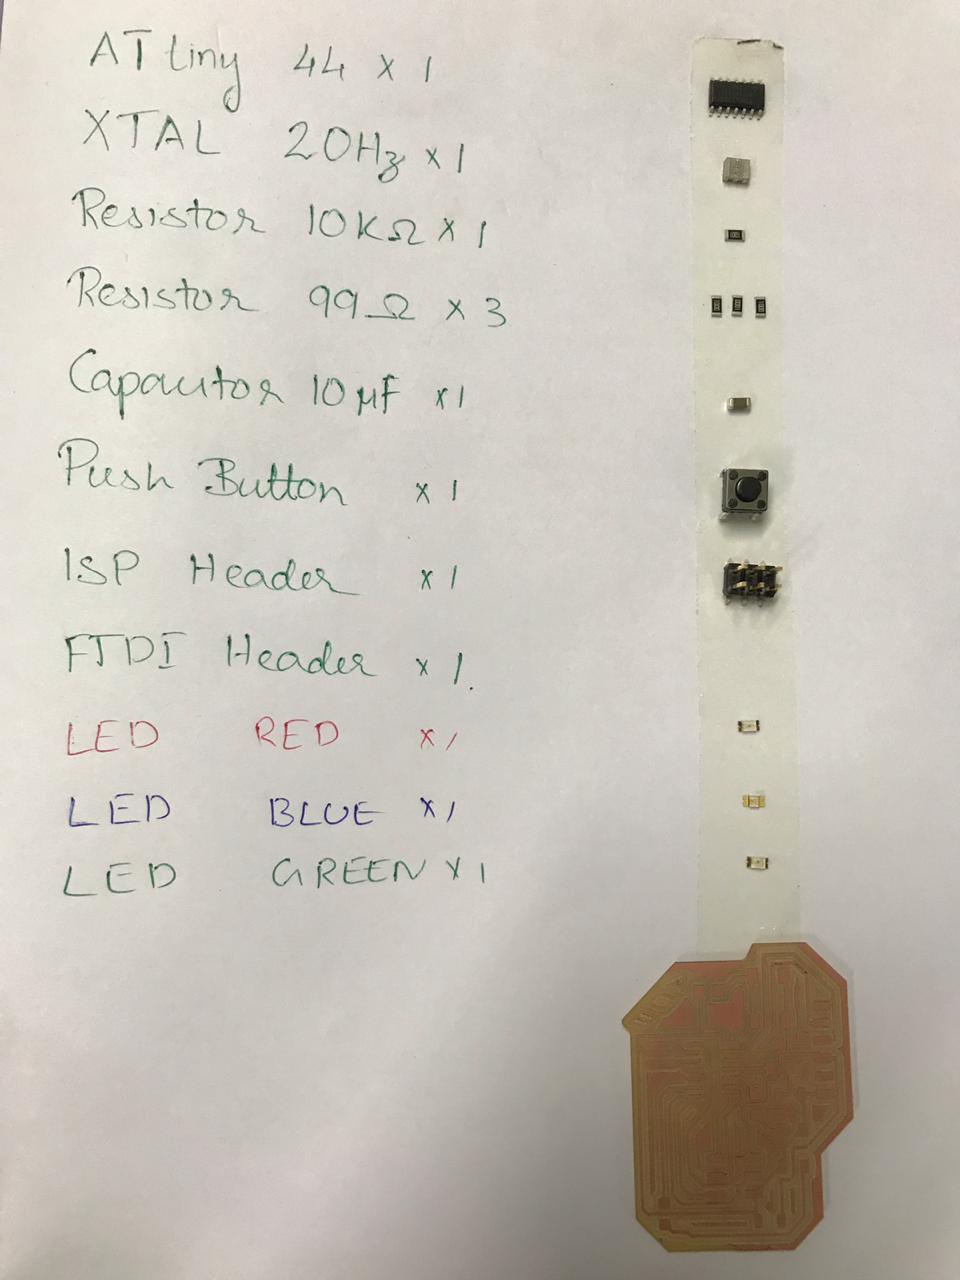 ATtiny 44 x 1
XTAL 20Hz x 1
Resistor 10KΩ x 1
Resistor 99Ω x 3
Capacitor 10 µF x 1
Push Button x 1
ISP Header x 1
FTDI Header x 1.
LED RED x 1
LED BLUE x 1
LED GREEN x 1